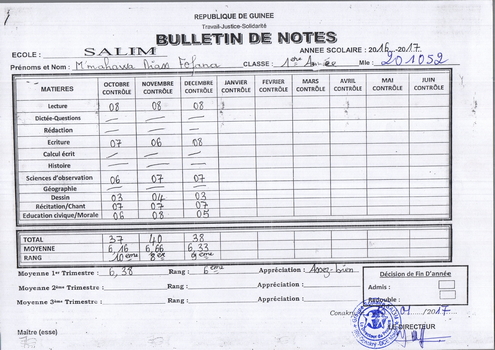 REPUBLIQUE DE GUINEE
Travail-Justice-Solidarité
BULLETIN DE NOTES
ECOLE : SALIM ANNEE SCOLAIRE : 2016-2017
Prénoms et Nom : M'mahawa CLASSE : 1ère Année Mle : 201052
MATIERES OCTOBRE CONTRÔLE NOVEMBRE CONTRÔLE DECEMBRE CONTRÔLE JANVIER CONTRÔLE FEVRIER CONTRÔLE MARS CONTRÔLE AVRIL CONTRÔLE MAI CONTRÔLE JUIN CONTRÔLE
Lecture 08 08 08
Dictée-Questions — — —
Rédaction — — —
Ecriture 07 06 08
Calcul écrit — — —
Histoire — — —
Sciences d'observation 06 07 07
Géographie — — —
Dessin 03 04 03
Récitation/Chant 07 07 07
Education civique/Morale 06 08 05
TOTAL 37 40 38
MOYENNE 6,16 6,66 6,33
RANG 10ème 8è 9ème
Moyenne 1er Trimestre : 6,38 Rang : 6ème Appréciation : Assez-bien
Moyenne 2ème Trimestre : Rang : Appréciation :
Moyenne 3ème Trimestre : Rang : Appréciation :
Décision de Fin D'année
Admis :
Redouble :
Conakry 01/2017
Maître (esse) LE DIRECTEUR